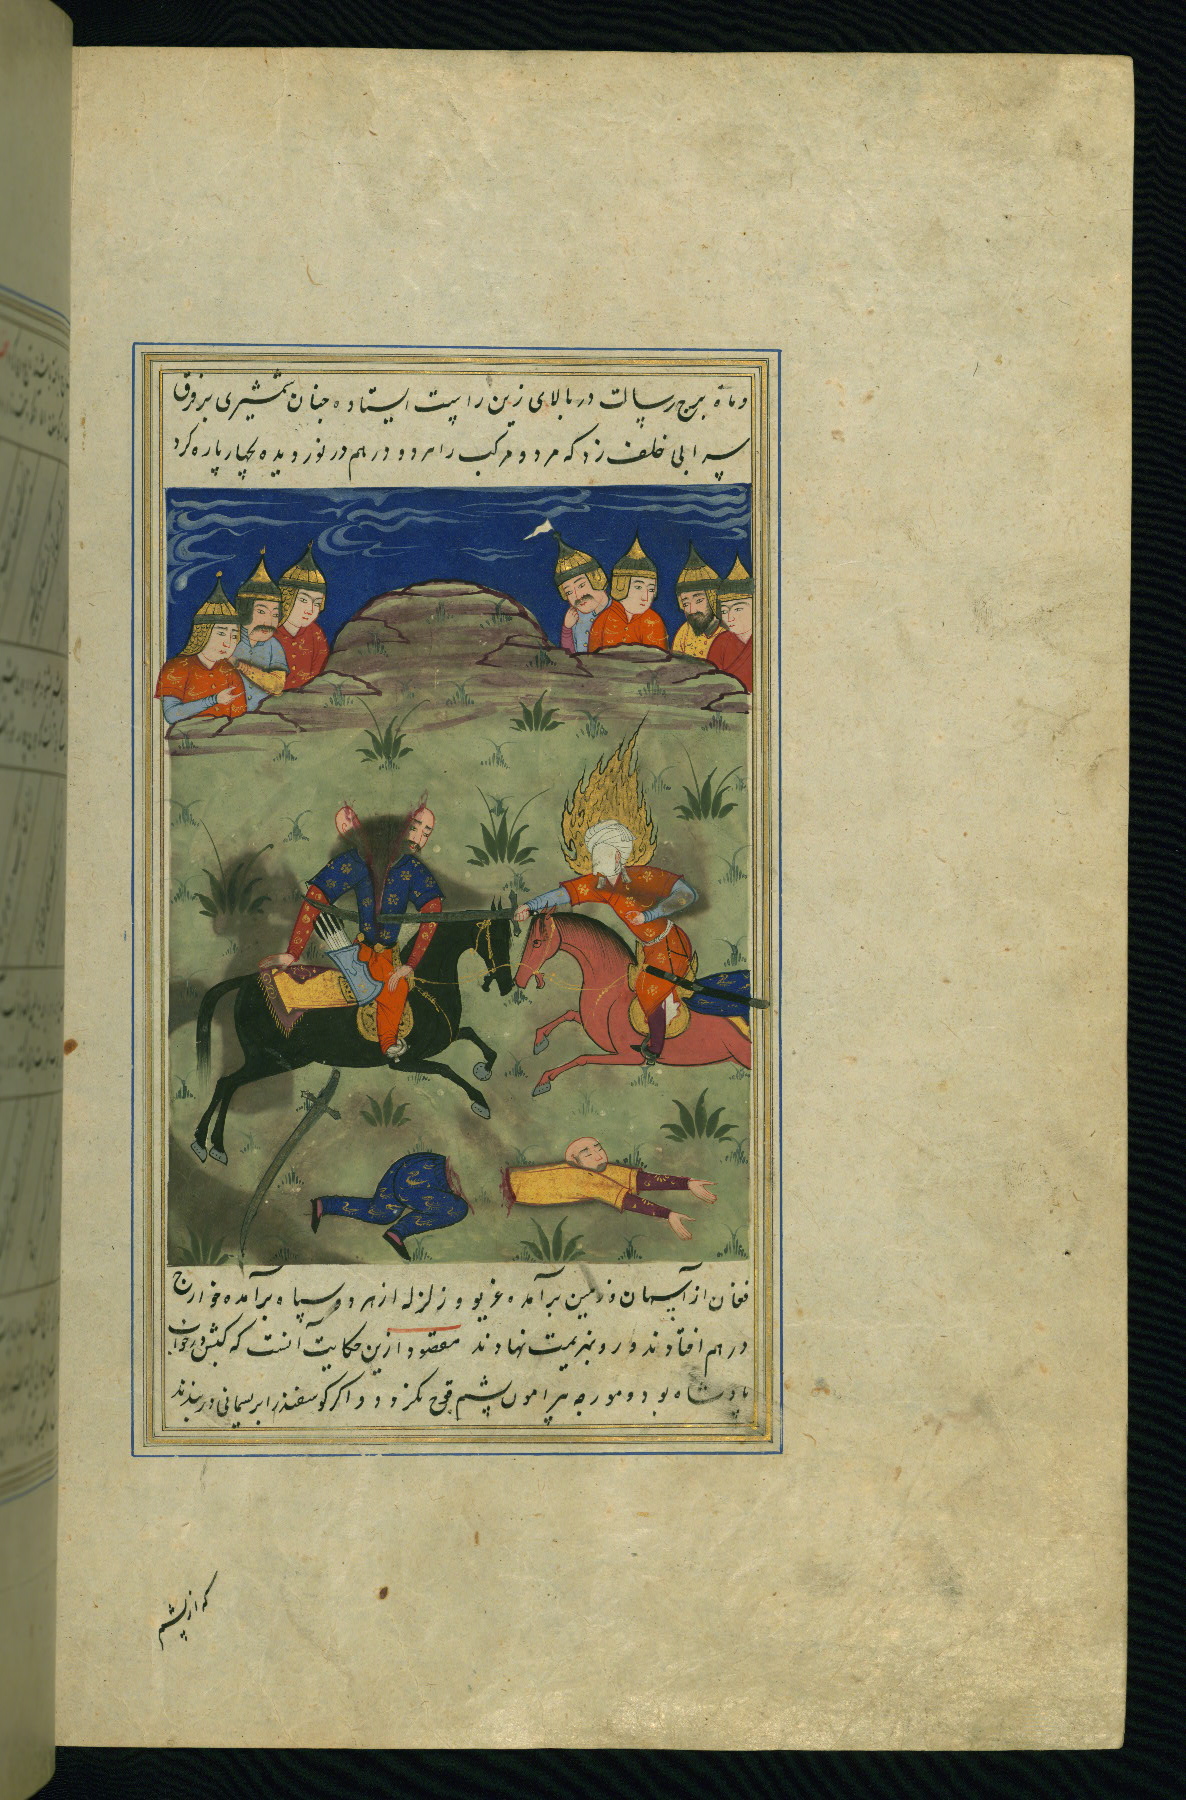 و ماه برج رسالت در بالای زین راست ایستاده چنان شمشیری بر فرق
سپه ابی خلف زد که مرد و مرکب را هر دو در هم در نوردیده بچهار پاره کرد
فغان از آسمان و زمین برآمد و غریو و زلزله از هر دو سپاه برآمده خوارج
در هم افتادند و رو بهزیمت نهادند مقصود ازین حکایت آنست که کبش در خواب
پادشاه بود و مورچه پیرامون پشم قوچ نکردد و اکر کوسفند را بریسمانی در بندند
که از پشم